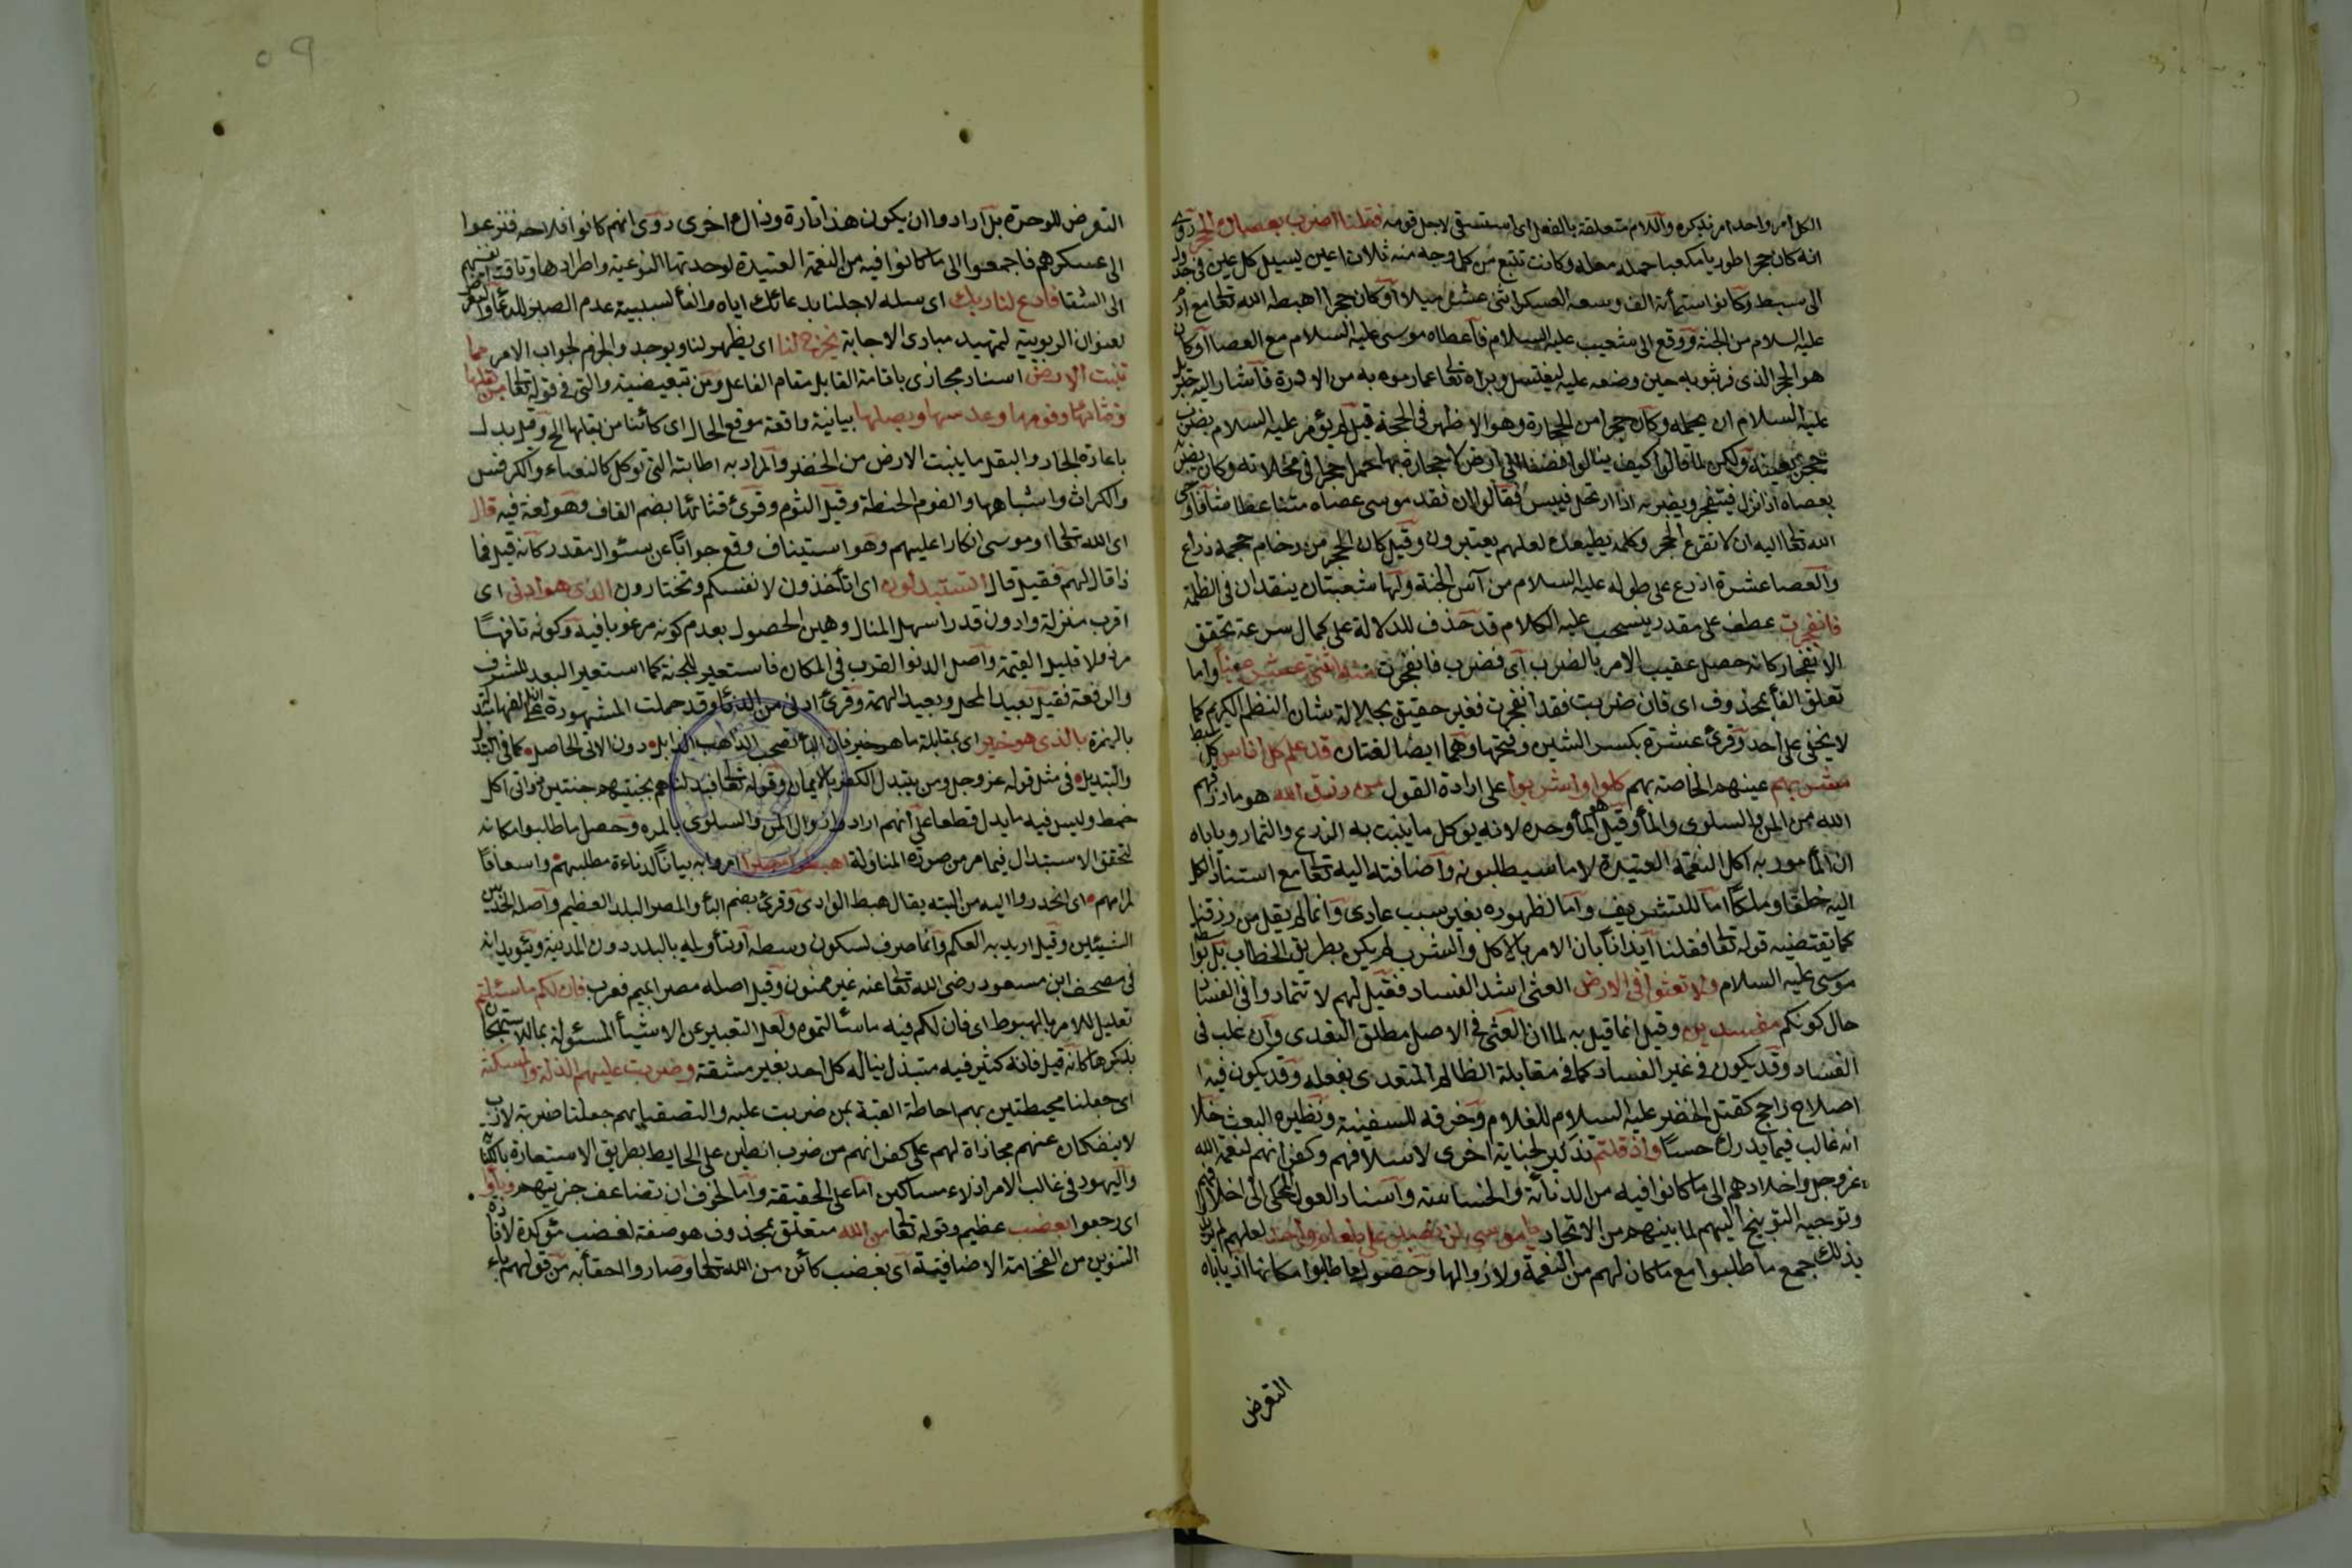 الكل امر واحد امر بذكره واللام متعلقة بالفعل اى استسقى لاجل قومه فقلنا اضرب بعصاك الحجر روى
انه كان حجرا طوريا مكعبا حمله معه وكانت تنبع من كل وجه منه ثلاث اعين يسيل كل عين فى جدول
الى سبط وكانوا ستمائة الف وسعة العسكر اثنى عشر ميلا او كان حجرا اهبطه الله تعالى مع ادم
عليه السلام من الجنة ووقع الى شعيب عليه السلام فاعطاه موسى عليه السلام مع العصا او كان
هو الحجر الذى فر بثوبه حين وضعه عليه ليغتسل وبراه تعالى عما رموه به من الادرة فاشار اليه جبريل
عليه السلام ان يحمله وكان حجرا من الحجارة وهو الاظهر فى الحجة قيل لم يؤمر عليه السلام بضرب
حجر بعينه ولكن لما قالوا كيف بنا لو افضنا الى ارض لا حجارة بها حمل حجرا فى مخلاته وكان يضربه
بعصاه اذا نزل فيتفجر ويضربه اذا ارتحل فييبس فقالوا ان فقد موسى عصاه متنا عطشا فاوحى
الله تعالى اليه ان لا تقرع الحجر وكلمه يطعك لعلهم يعتبرون وقيل كان الحجر من رخام حجمه ذراع
والعصا عشرة اذرع على طوله عليه السلام من آس الجنة ولها شعبتان يتقدان فى الظلمة
فانفجرت عطف على مقدر ينسحب عليه الكلام قد حذف للدلالة على كمال سرعة تحقق
الانفجار كانه حصل عقيب الامر بالضرب اى فضرب فانفجرت منه اثنتى عشرة عينا واما
تعلق الفاء بمحذوف اى فان ضربت فقد انفجرت فغير حقيق بجلالة شان النظم الكريم كما
لا يخفى على احد وقرئ عشرة بكسر الشين وفتحها وهما ايضا لغتان قد علم كل اناس كل سبط
مشربهم عينهم الخاصة بهم كلوا واشربوا على ارادة القول من رزق الله هو ما رزقهم
الله من المن والسلوى والماء وقيل هو الماء وحده لانه يوكل ما ينبت به الزرع والثمار وياباه
ان المأمور به اكل النعمة العتيدة لا ما سيطلبونه واضافته اليه تعالى مع استناد الكل
اليه خلقا وملكا اما للتشريف واما لظهوره بغير سبب عادى وانما لم يقل من رزقنا
كما يقتضيه قوله تعالى فقلنا ايذانا بان الامر بالاكل والشرب لم يكن بطريق الخطاب بل بواسطة
موسى عليه السلام ولا تعثوا فى الارض العثى اشد الفساد فقيل لهم لا تتمادوا فى الفساد
حال كونكم مفسدين وقيل انما قيل به لما ان العثى فى الاصل مطلق التعدى وان غلب فى
الفساد وقد يكون فى غير الفساد كما فى مقابلة الظالم المتعدى بفعله وقد يكون فيه
اصلاح راجح كقتل الخضر عليه السلام للغلام وخرقه للسفينة ونظيره العيث خلا
انه غالب فيما يدرك حسا واذ قلتم تذكير لجناية اخرى لاسلافهم وكفرانهم لنعمة الله
عز وجل واخلادهم الى ما كانوا فيه من الدنائة والخساسة واسناد القول المحكى الى اخلافهم
وتوجيه التوبيخ اليهم لما بينهم من الاتحاد يا موسى لن نصبر على طعام واحد لعلهم لم يريدوا
بذلك جمع ما طلبوا مع ما كان لهم من النعمة ولا زوالها وحصول ما طلبوا مكانها اذ ياباه
التعرض
٥٩
التعرض للوحدة بل ارادوا ان يكون هذا تارة وذاك اخرى روى انهم كانوا فلاحة فنزعوا
الى عسكرهم فاجمعوا الى ما كانوا فيه من النعمة العتيدة لوحدتها النوعية واطرادها وتاقت انفسهم
الى الشقا فادع لنا ربك اى سله لاجلنا بدعائك اياه والفاء لسببية عدم الصبر للدعاء والتعرض
لعنوان الربوبية لتمهيد مبادى الاجابة يخرج لنا اى يظهر لنا ويوجد والجزم لجواب الامر مما
تنبت الارض اسناد مجازى باقامة القابل مقام الفاعل ومن تبعيضية والتى فى قوله تعالى من بقلها
وقثائها وفومها وعدسها وبصلها بيانية واقعة موقع الحال اى كائنا من بقلها الخ وقيل بدل
باعادة الجار والبقل ما ينبت الارض من الخضر والمراد به اطائبه التى توكل كالنعناع والكرفس
والكراث واشباهها والفوم الحنطة وقيل الثوم وقرئ قثائها بضم القاف وهو لغة فيه قال
اى الله تعالى او موسى انكارا عليهم وهو استيناف وقع جوابا عن سئوال مقدر كانه قيل فما
ذا قال لهم فقيل قال اتستبدلون اى اتأخذون لانفسكم وتختارون الذى هو ادنى اى
اقرب منزلة وادون قدرا سهل المنال وهين الحصول بعدم كونه مرغوبا فيه وكونه تافها
مرذولا قليل القيمة واصل الدنو القرب فى المكان فاستعير للخسة كما استعير البعد للشرف
والرفعة فقيل بعيد المحل وبعيد الهمة وقرئ ادنئ من الدناءة وقد حملت المشهورة على ان الفها مبدلة
بالهمزة بالذى هو خير اى بمقابلة ما هو خير فان الباء تصحب الذاهب الزايل دون الآتى الحاصل كما فى التبدل
والتبديل فى مثل قوله عز وجل ومن يتبدل الكفر بالايمان وقوله تعالى وبدلناهم بجنتيهم جنتين ذواتى اكل
خمط وليس فيه ما يدل قطعا على انهم ارادوا زوال المن والسلوى بالمرة وحصل ما طلبوا مكانه
لتحقق الاستبدال فيما مر من صورة المناولة اهبطوا مصرا امروا به بيانا لدناءة مطلبهم واسعافا
لمرامهم اى انحدروا اليه من التيه يقال هبط الوادى وقرئ بضم الباء والمصر البلد العظيم واصله الحد بين
الشيئين وقيل اريد به العلم وانما صرف لسكون وسطه او لتأويله بالبلد دون المدينة ويؤيده انه
فى مصحف ابن مسعود رضى الله تعالى عنه غير منون وقيل اصله مصرايم فعرب فان لكم ما سئلتم
تعليل للامر بالهبوط اى فان لكم فيه ما سئالتموه ولعل التعبير عن الاشياء المسئولة بما للاستهجان
بذكرها كانه قيل فانه كثير فيه مبتذل يناله كل احد بغير مشقة وضربت عليهم الذلة والمسكنة
اى جعلتا محيطتين بهم احاطة القبة بمن ضربت عليه والتصقتا بهم جعلتا ضربة لازب
لا ينفكان عنهم مجازاة لهم على كفرانهم من ضرب الطين على الحايط بطريق الاستعارة بالكناية
واليهود فى غالب الامر اذلاء مساكين اما على الحقيقة واما لخوف ان تضاعف جزيتهم وباؤا
اى رجعوا بغضب عظيم وقوله تعالى من الله متعلق بمحذوف هو صفة لغضب مؤكدة لافادة
التنوين من الفخامة الاضافية اى بغضب كائن من الله تعالى او صاروا احقاء به من قولهم باء